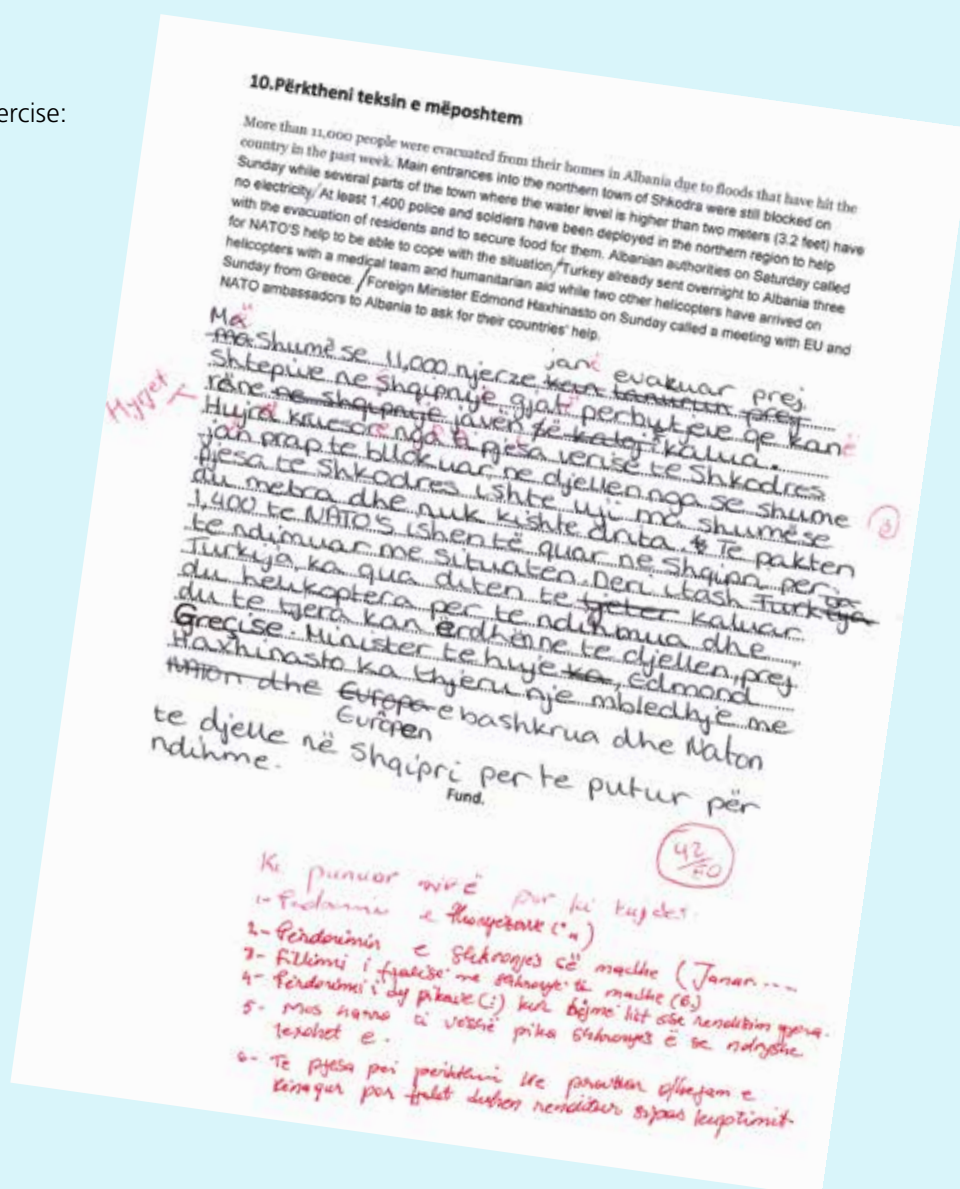 ercise:
10.Përktheni teksin e mëposhtem
More than 11,000 people were evacuated from their homes in Albania due to floods that have hit the
country in the past week. Main entrances into the northern town of Shkodra were still blocked on
Sunday while several parts of the town where the water level is higher than two meters (3.2 feet) have
no electricity/ At least 1,400 police and soldiers have been deployed in the northern region to help
with the evacuation of residents and to secure food for them. Albanian authorities on Saturday called
for NATO'S help to be able to cope with the situation/ Turkey already sent overnight to Albania three
helicopters with a medical team and humanitarian aid while two other helicopters have arrived on
Sunday from Greece. / Foreign Minister Edmond Haxhinasto on Sunday called a meeting with EU and
NATO ambassadors to Albania to ask for their countries' help.
Më
Shumë se 11,000 njerze janë evakuar prej
Shtepive ne Shqipnije gjatë perbytjeve qe kanë
rëne javën kalua.
Hyrjet
Hujra kruesore nga pjesa verise te Shkodres
jan prap te bllokuar ne djellen nga se shume
pjesa te Shkodres ishte uji ma shumë se
du metra dhe nuk kishte drita. Të pakten
1,400 te NATO'S ishen të quar ne Shqipri per
te ndimuar me situaten. Deri itash
Turkija, ka qua diten te kaluar
du helikoptera per te ndihmua dhe
du te tjera kan ërdhën ne te djellen, prej
Greçise. Minister te huje Edmond
Haxhinasto ka thjeru nje mbledhje me
dhe e bashkrua dhe Naton
Europen
te djelle në Shqipri per te putur për
ndihme.
Fund.
42
50
Ki punuar mirë por ki kujdes.
1- e thonjezave („)
2- Përdorimin e shkronjës së madhe (Janar....
3- Fillimi i fjalisë me shkronje të madhe (6.)
4- Përdorimi i dy pikave (:) kur bëjmë list ose renditim gjera.
5- Mos harro ti veshë pika shkronjës ë se ndryshe
lexohet e.
6- Te pjesa per perkthimi
por fjalët duhen renditur sipas kuptimit.